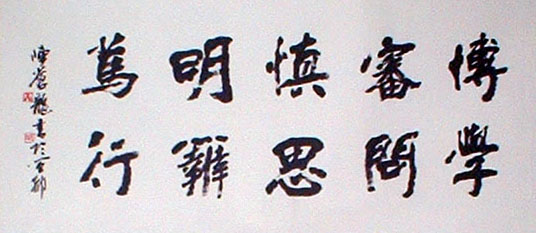 博學
審問
慎思
明辨
篤行